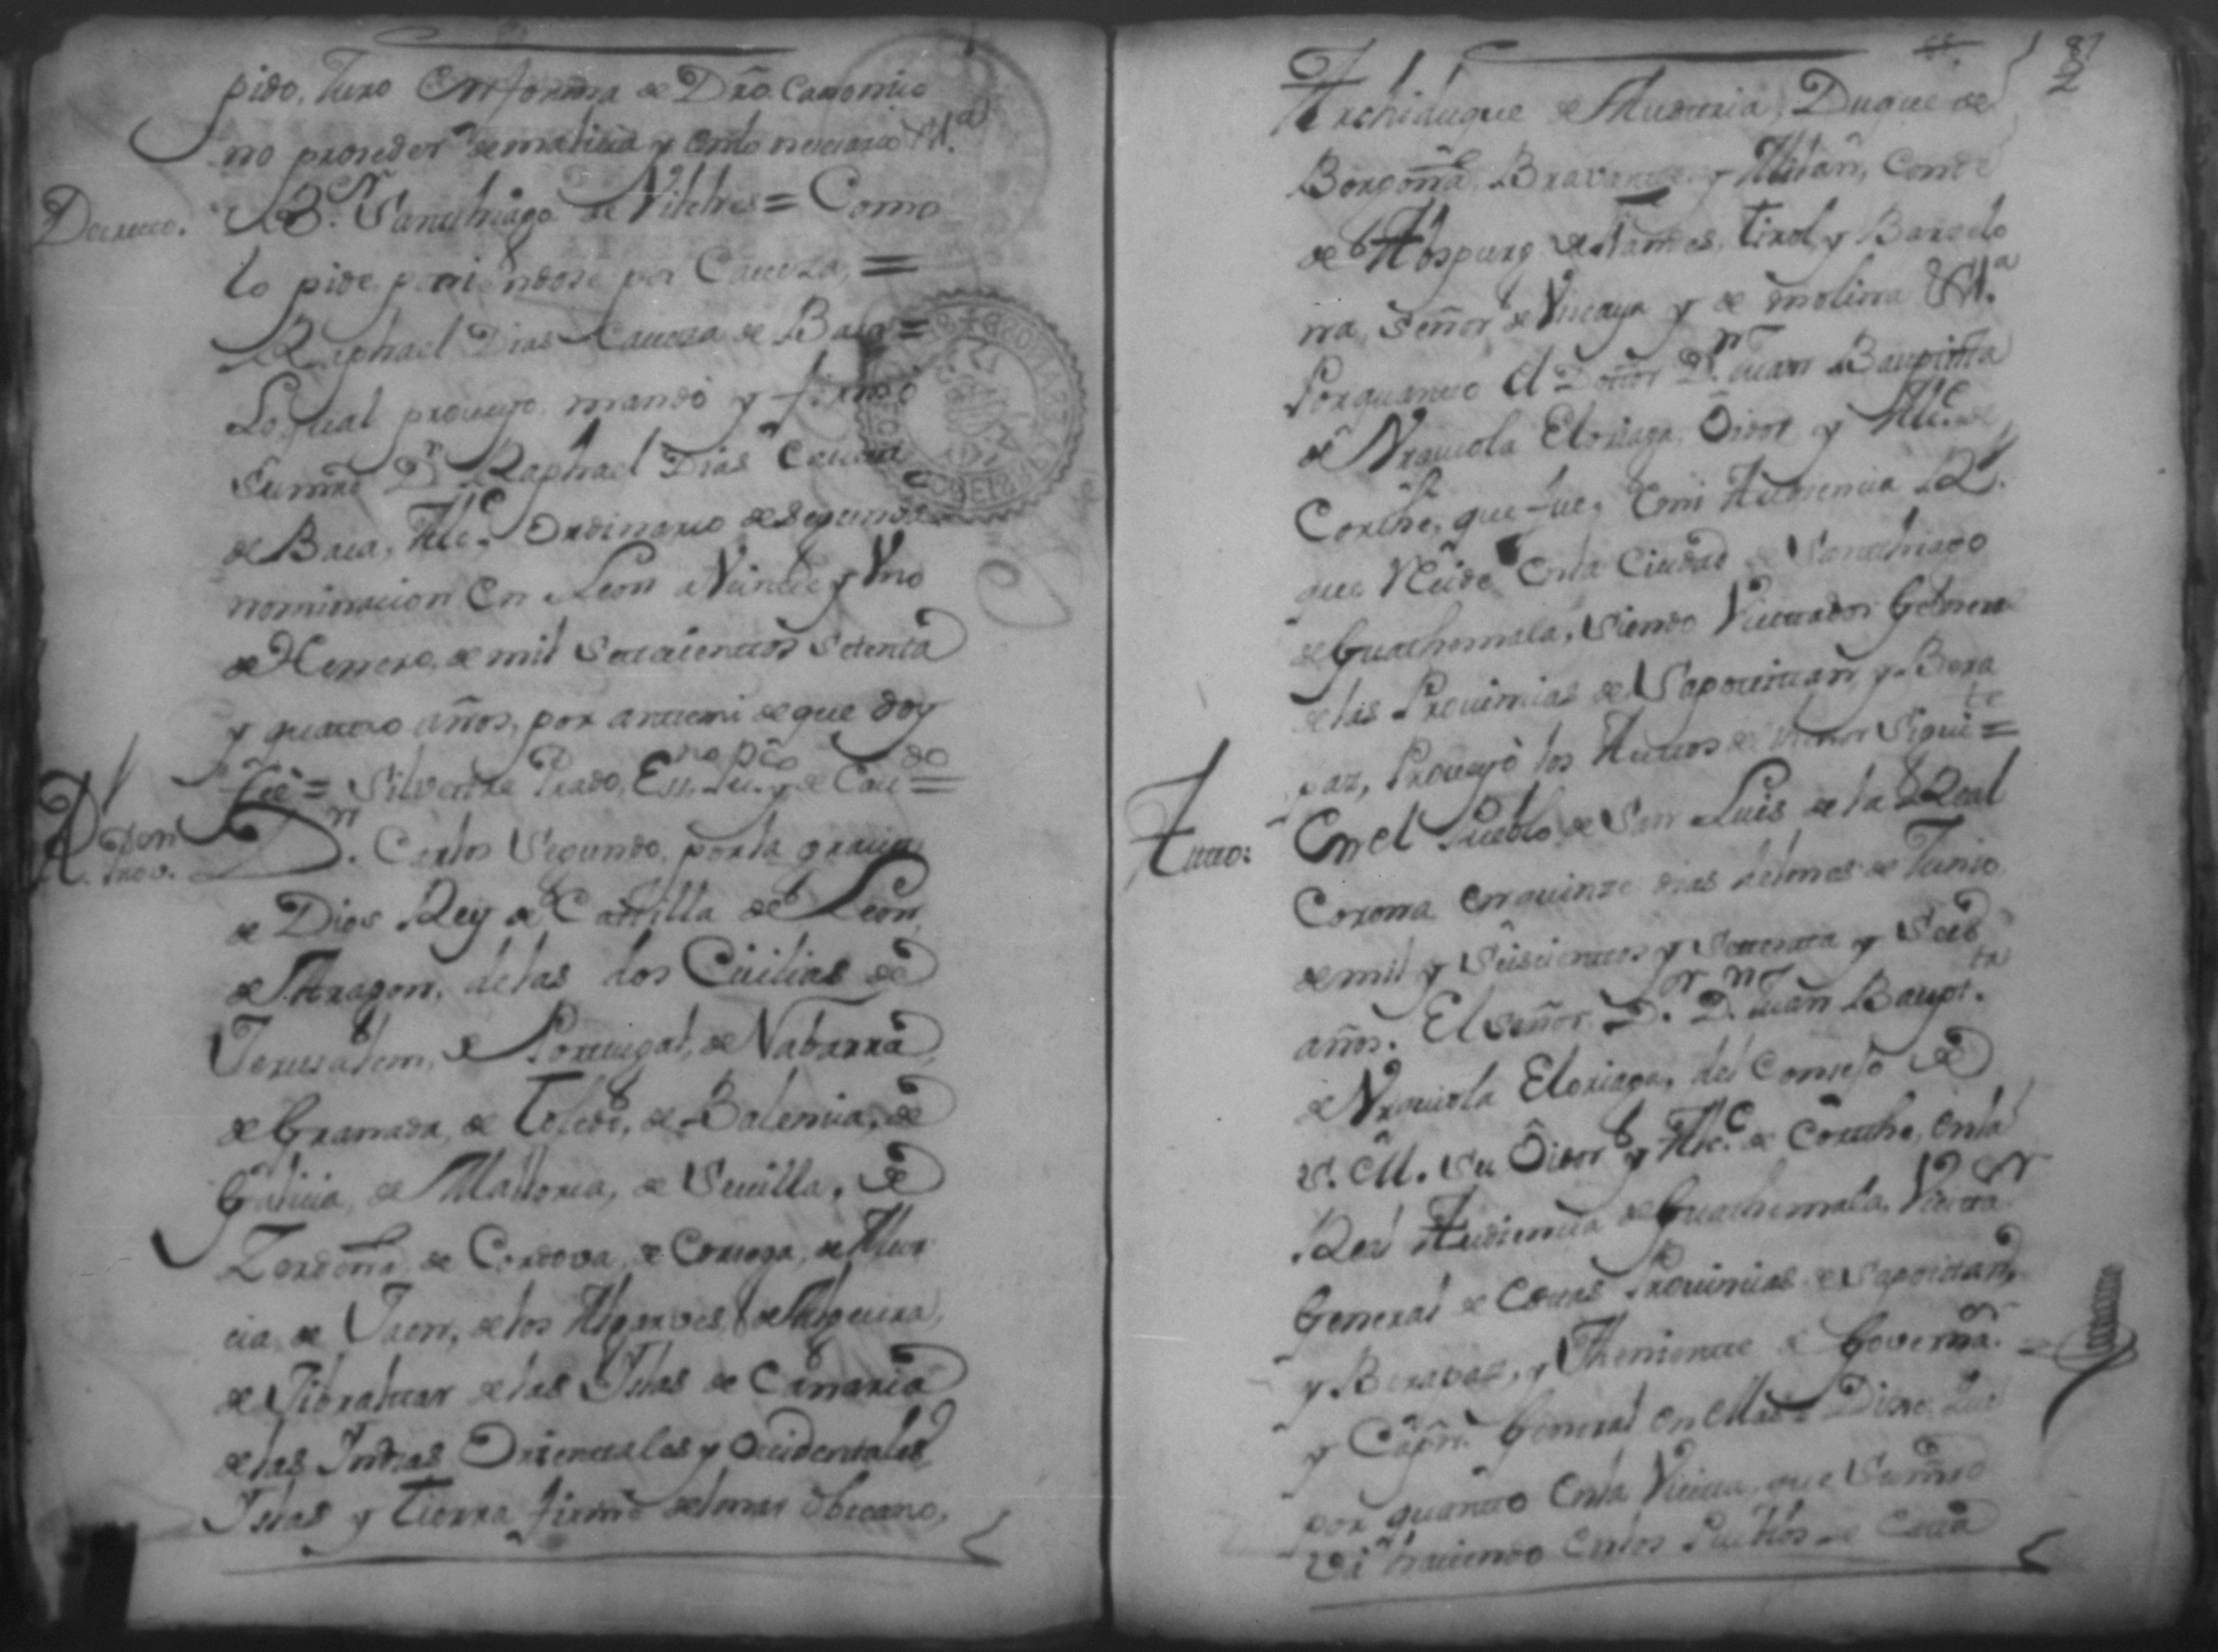 pido, Juro en forma de Dro. Canonico
no proceder de malicia y en lo necesario &a.
Dn. Sancthiago de Vilches = Como
Decreto.
lo pide poniendose por Caveza =
Raphael Dias Caveza de Baca =
Lo qual proveyo, mandó y firmó
su mrd Dn. Raphael Dias Caveza
de Baca, Alce. Ordinario de segunda
nominacion en Leon a Veinte y Uno
de Henero, de mil setecientos setenta
y quatro años, por ante mi de que doy
fee = Silvestre Prado, Essno. puco. y de Cavdo =
Rl. Don Prov.
Dn. Carlos Segundo, por la gracia
de Dios Rey de Castilla de Leon,
de Aragon, de las dos Cicilias de
Jerusalem, de Portugal, de Nabarra,
de Granada, de Toledo, de Balencia, de
Galicia, de Mallorca, de Sevilla, de
Zerdeña, de Cordova, de Corcega, de Mur
cia, de Jaen, de los Algarves, de Algecira,
de Jibraltar de las Islas de Canaria
de las Indias Orientales y Occidentales
Islas y Tierra firme del mar Occeano,
87
2
Archiduque de Austria, Duque de
Borgoña, Bravante y Milan, Conde
de Abspurg de Flandes, Tirol, y Barcelo
na, Señor de Vizcaya y de Molina &a.
Por quanto el Doctor Dn. Juan Baupista
de Urquiola Elorriaga, Oidor y Alce. de
Corthe, que fue, en mi Audiencia Rl.
que Recide en la Ciudad de Sancthiago
de Guathemala, siendo Vicitador General
de las Provincias de Sapotitan, y Bera
paz, Proveyó los Autos del tenor siguite =
Auto:
En el Pueblo de San Luis de la Real
Corona en quinze dias del mes de Junio
de mil y seiscientos y setenta y seis
años. El señor Dr. Dn. Juan Baupta.
de Urquiola Elorriaga, del Consejo de
S. M. su Oidor y Alce. de Corthe, en la
Real Audiencia de Guathemala, Vicitador
General de estas Provincias de Sapotitan,
y Berapaz, y Theniente de Governador
y Capn. General en ellas = Dixo: Que
por quanto en la Vicita, que su mrd
va haciendo en los Pueblos de esta